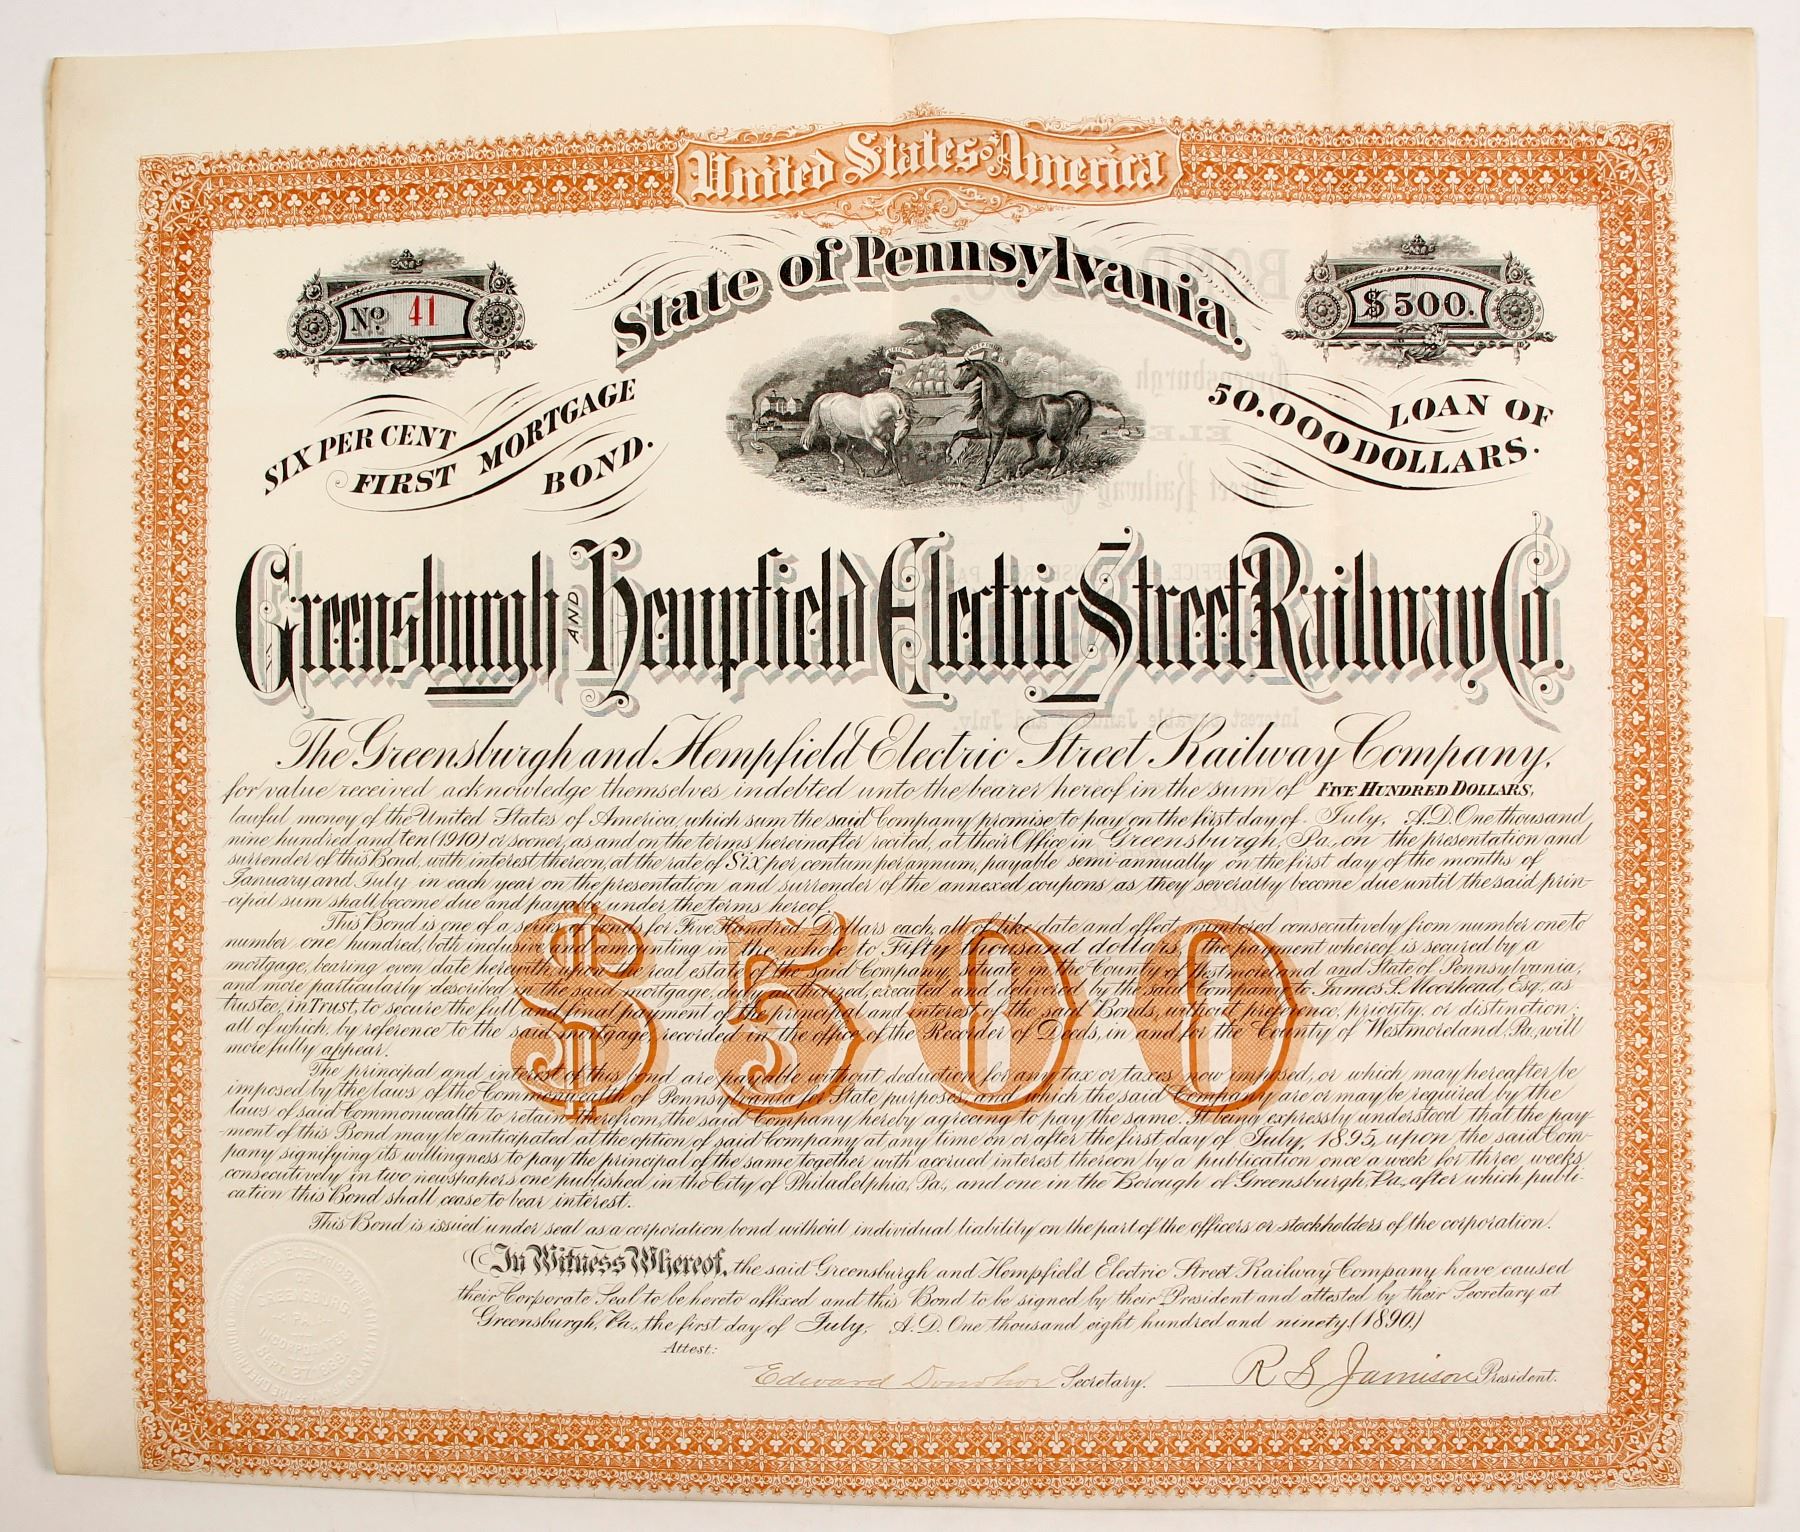 United States of America
State of Pennsylvania.
No. 41
$500.
SIX PER CENT
FIRST MORTGAGE
BOND.
LOAN OF
50.000 DOLLARS.
Greensburgh AND Hempfield Electric Street Railway Co.
The Greensburgh and Hempfield Electric Street Railway Company,
for value received acknowledge themselves indebted unto the bearer hereof in the sum of FIVE HUNDRED DOLLARS,
lawful money of the United States of America, which sum the said Company promise to pay on the first day of July, A.D. One thousand
nine hundred and ten (1910) or sooner, as and on the terms hereinafter recited, at their Office in Greensburgh, Pa., on the presentation and
surrender of this Bond, with interest thereon, at the rate of Six per centum per annum, payable semi-annually on the first day of the months of
January and July in each year on the presentation and surrender of the annexed coupons as they severally become due until the said prin-
-cipal sum shall become due and payable under the terms hereof.
This Bond is one of a series of bonds for Five Hundred Dollars each, all of like date and effect, numbered consecutively from number one to
number one hundred, both inclusive, and amounting in the whole to Fifty thousand dollars, the payment whereof is secured by a
mortgage, bearing even date herewith, upon the real estate of the said Company, situate in the County of Westmoreland and State of Pennsylvania,
and more particularly described in the said mortgage, duly authorized, executed and delivered by the said Company to James S. Moorhead, Esq., as
trustee, in Trust, to secure the full and final payment of the principal and interest of the said Bonds, without preference, priority, or distinction;
all of which, by reference to the said mortgage, recorded in the office of the Recorder of Deeds, in and for the County of Westmoreland, Pa., will
more fully appear.
The principal and interest of this bond are payable without deduction for any tax or taxes now imposed, or which may hereafter be
imposed by the laws of the Commonwealth of Pennsylvania for State purposes, and which the said Company are or may be required by the
laws of said Commonwealth to retain therefrom, the said Company hereby agreeing to pay the same. It being expressly understood that the pay-
-ment of this Bond may be anticipated at the option of said Company at any time on or after the first day of July, 1895, upon the said Com-
pany signifying its willingness to pay the principal of the same together with accrued interest thereon by a publication once a week for three weeks
consecutively in two newspapers one published in the City of Philadelphia, Pa., and one in the Borough of Greensburgh, Pa., after which publi-
-cation this Bond shall cease to bear interest.
$500
This Bond is issued under seal as a corporation bond without individual liability on the part of the officers or stockholders of the corporation.
In Witness Whereof, the said Greensburgh and Hempfield Electric Street Railway Company have caused
their Corporate Seal to be hereto affixed and this Bond to be signed by their President and attested by their Secretary at
Greensburgh, Pa., the first day of July, A.D. One thousand eight hundred and ninety. (1890.)
Attest:
Edward Donohoe Secretary. R S Jamison President.
GREENSBURGH
PA.
INCORPORATED